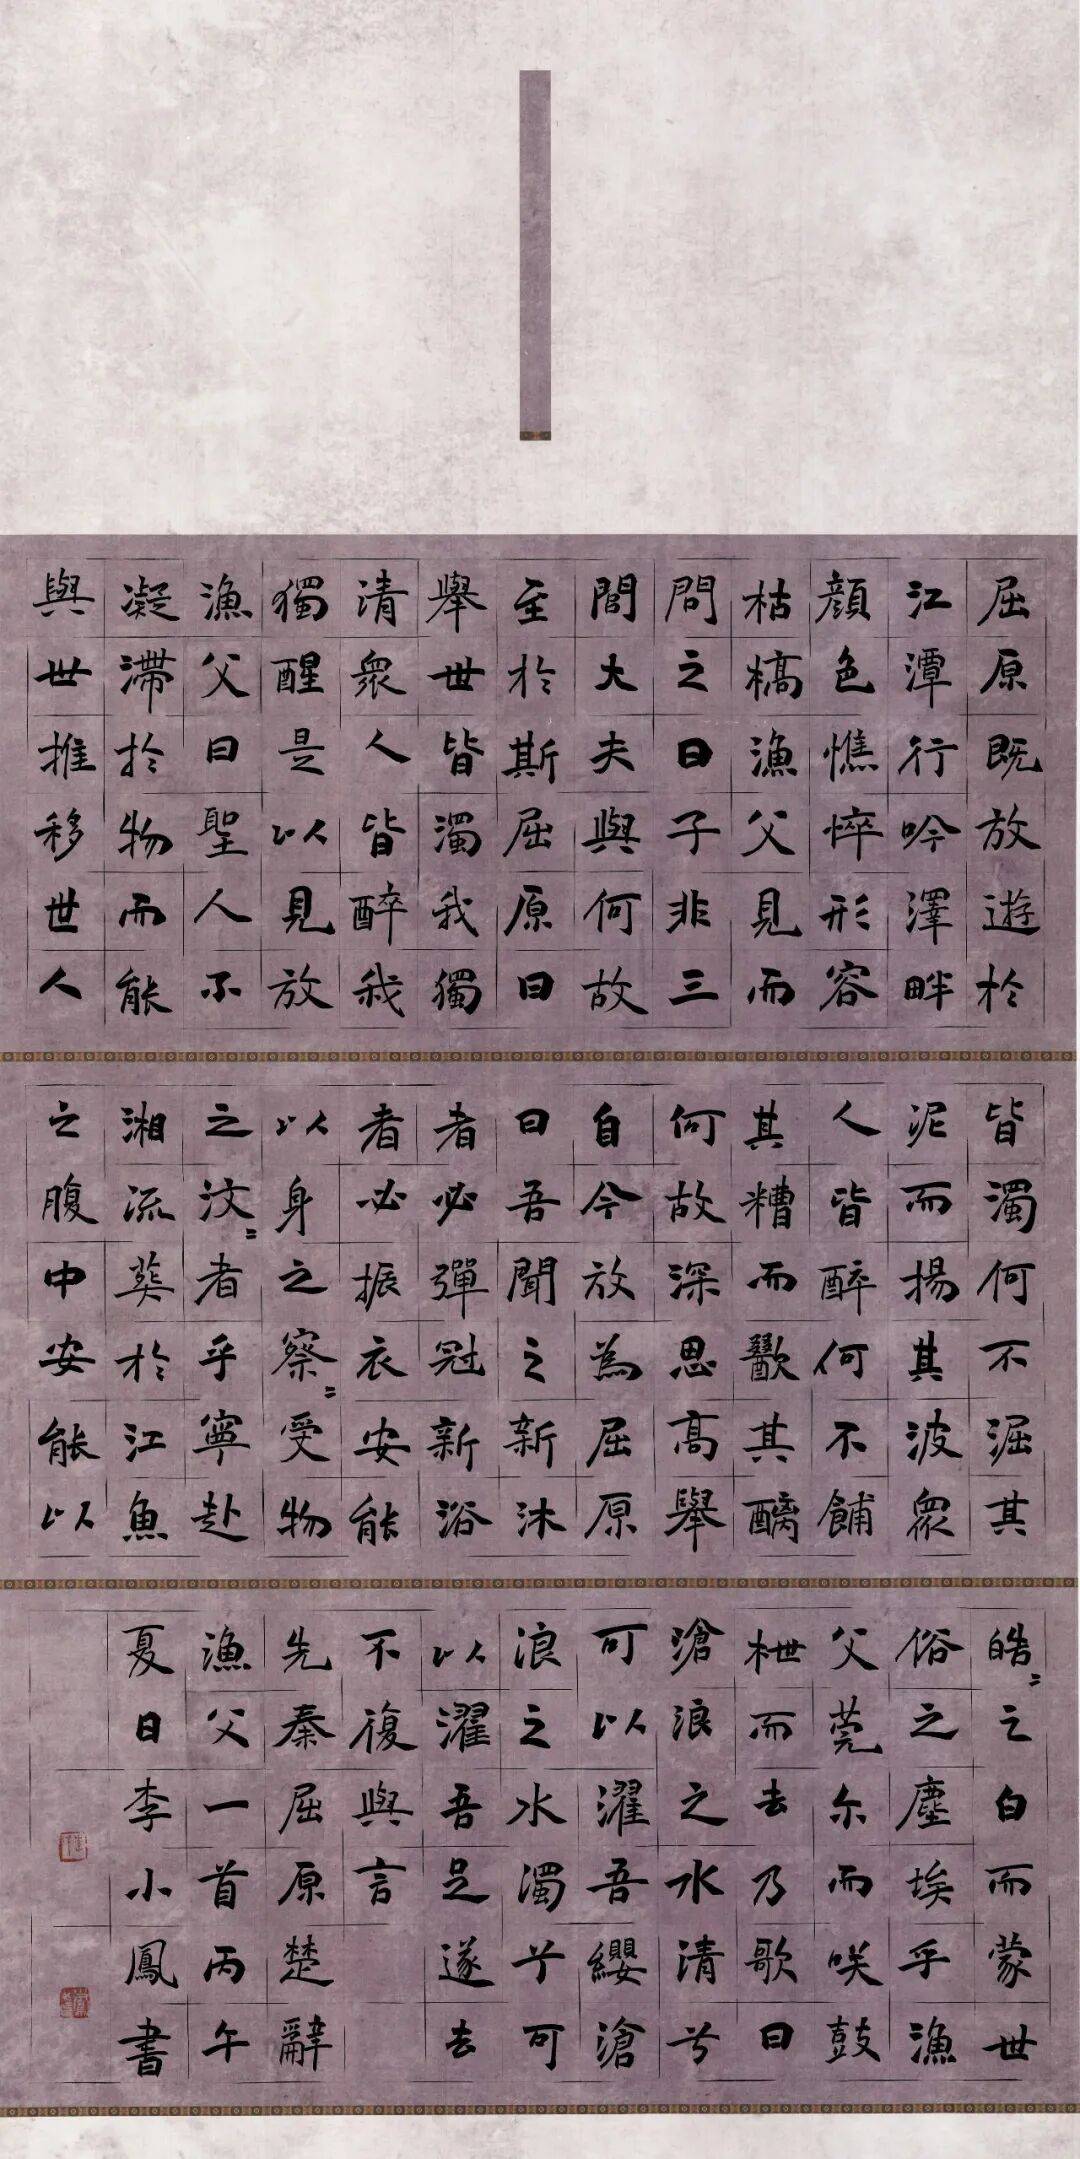 屈原既放遊於
江潭行吟澤畔
顔色憔悴形容
枯槁漁父見而
問之曰子非三
閭大夫與何故
至於斯屈原曰
舉世皆濁我獨
清衆人皆醉我
獨醒是以見放
漁父曰聖人不
凝滯於物而能
與世推移世人
皆濁何不淈其
泥而揚其波衆
人皆醉何不餔
其糟而歠其醨
何故深思高舉
自令放為屈原
曰吾聞之新沐
者必彈冠新浴
者必振衣安能
以身之察〻受物
之汶〻者乎寧赴
湘流葬於江魚
之腹中安能以
皓〻之白而蒙世
俗之塵埃乎漁
父莞尒而咲鼓
枻而去乃歌曰
滄浪之水清兮
可以濯吾纓滄
浪之水濁兮可
以濯吾足遂去
不復與言
先秦屈原楚辭
漁父一首丙午
夏日李小鳳書